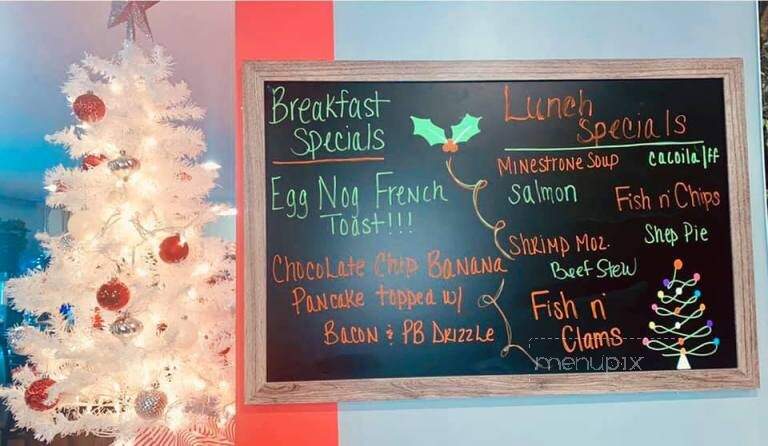 Breakfast
Specials
Egg Nog French
Toast!!!
Chocolate Chip Banana
Pancake topped w/
Bacon & PB Drizzle
Lunch
Specials
Minestrone Soup
Cacoila/ff
Salmon
Fish n' Chips
Shrimp Moz.
Shep Pie
Beef Stew
Fish n'
Clams
menupix